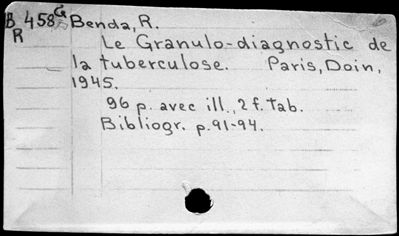 B 458 Benda, R.
R
Le Granulo-diagnostic de
la tuberculose. Paris, Doin,
1945.
96 p. avec ill., 2 f. tab.
Bibliogr. p. 91-94.